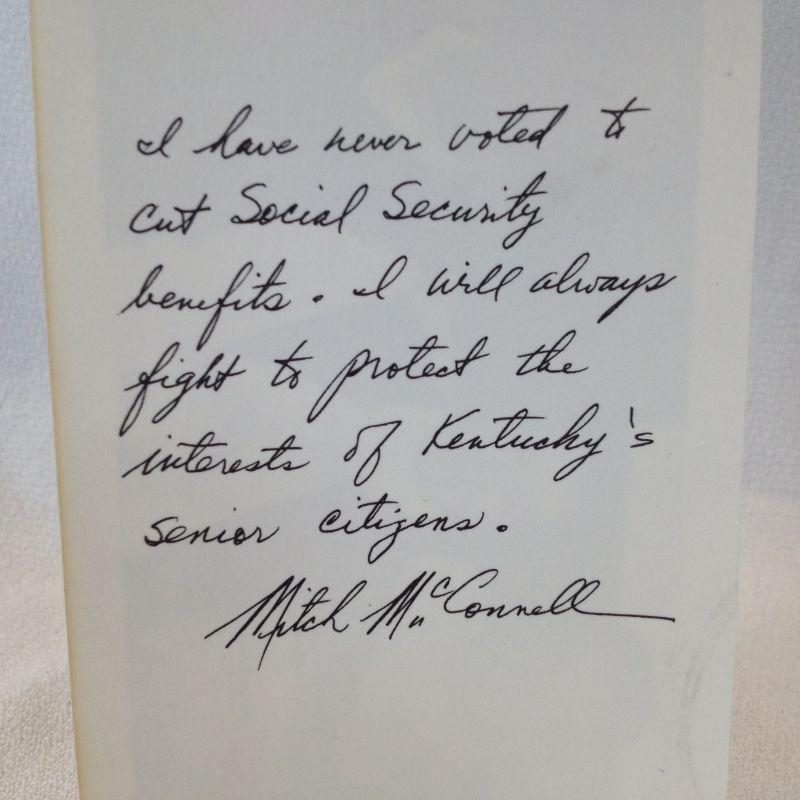 I have never voted to
cut Social Security
benefits. I will always
fight to protect the
interests of Kentucky's
senior citizens.
Mitch McConnell